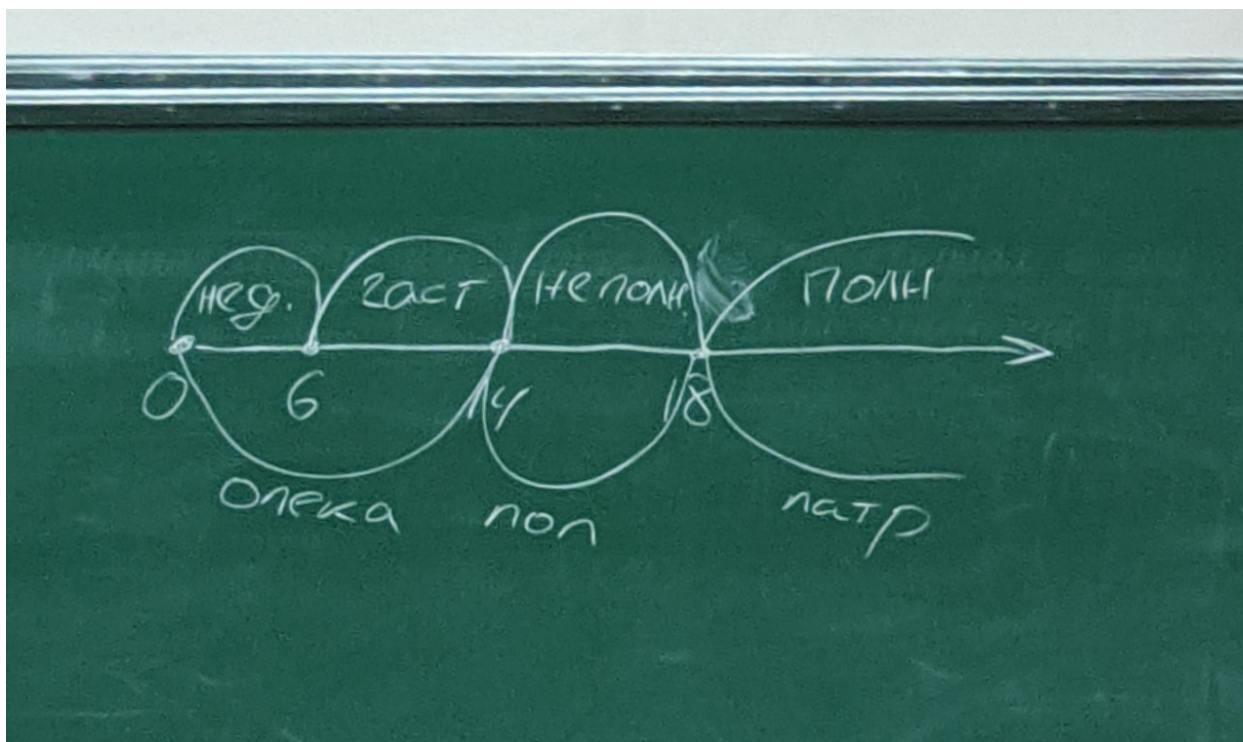 нед. част неполн. Полн
0 6 14 18
Опека поп патр